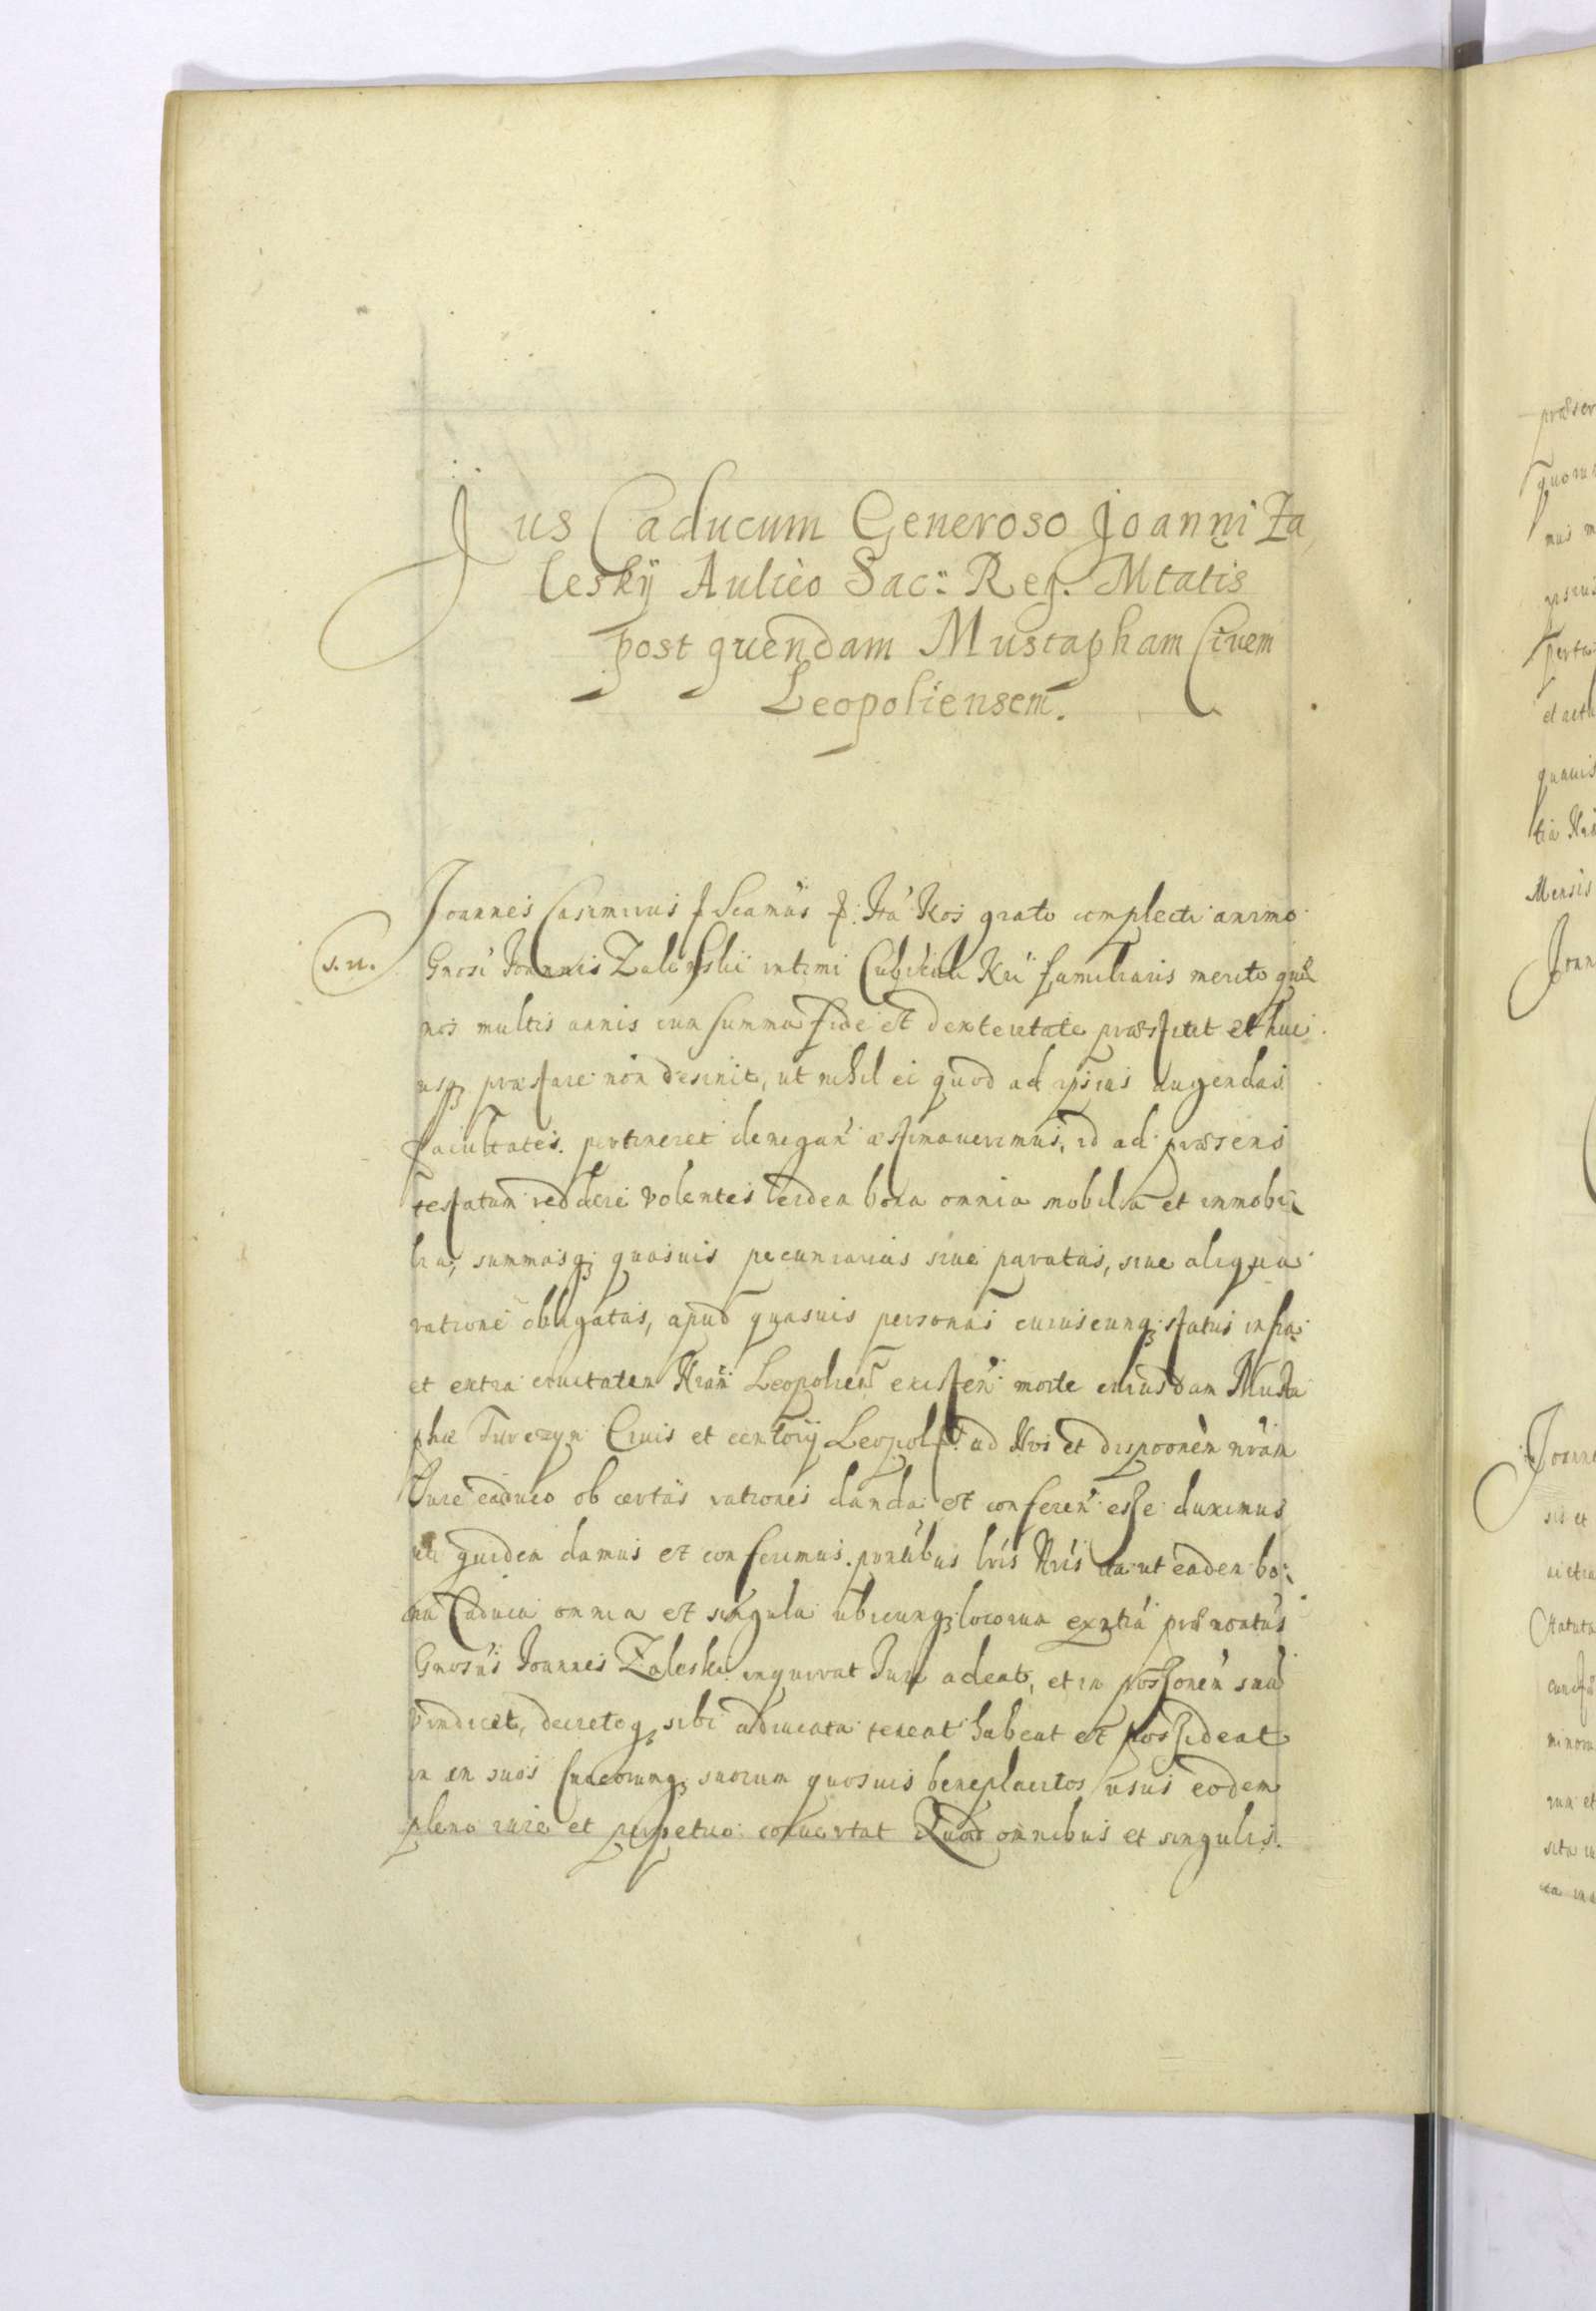 Jus Caducum Generoso Joanni Za
leskÿ Aulico Sac: Reg. Mtatis
post quendam Mustapham Civem
Leopoliensem.
Joannes Casimirus Scamus Ita Nos grato complecti animo
s. n.
Gnosi Joannis Zaleskii intimi Cubiculi Nri familiaris merita quæ
nos multis annis cum summa fide et dexteritate præstitit et huc
usq præstare non desinit, ut nihil ei quod ad ipsius augendas
facultates pertineret denegan æstimaverimus, id ad præsens
testatum reddere volentes eidem bona omnia mobilia et immobi
lia, summasq quasuis pecuniarias siue paratas, siue aliqua
ratione obligatas, apud quasuis personas cuiuscunq status infra
et extra ciuitatem Nram Leopolien existen morte cuiusdam Musta
phæ Turczyn Ciuis et Leopol ad Nos et disponem nram
Jure caduco ob certas rationes danda et conferen esse duximus
uti quidem damus et conferimus pntibus lris Nris ita ut eadem bo
na Caduca omnia et singula ubicunq locorum exntia prænoatus
Gnosus Joannes Zaleski inquirat Jure adeat, et in possonem suã
vindicet, decretoq sibi adiucata teneat habeat et possideat
in suos quosuis beneplacitos usus eodem
pleno iure et perpetuo conuertat Quod omnibus et singulis.
præser
quoru
mus m
ipsius
perta
quauis
tia Nrā
Mensis
Joan
Joann
sis et
Statuta
minoru